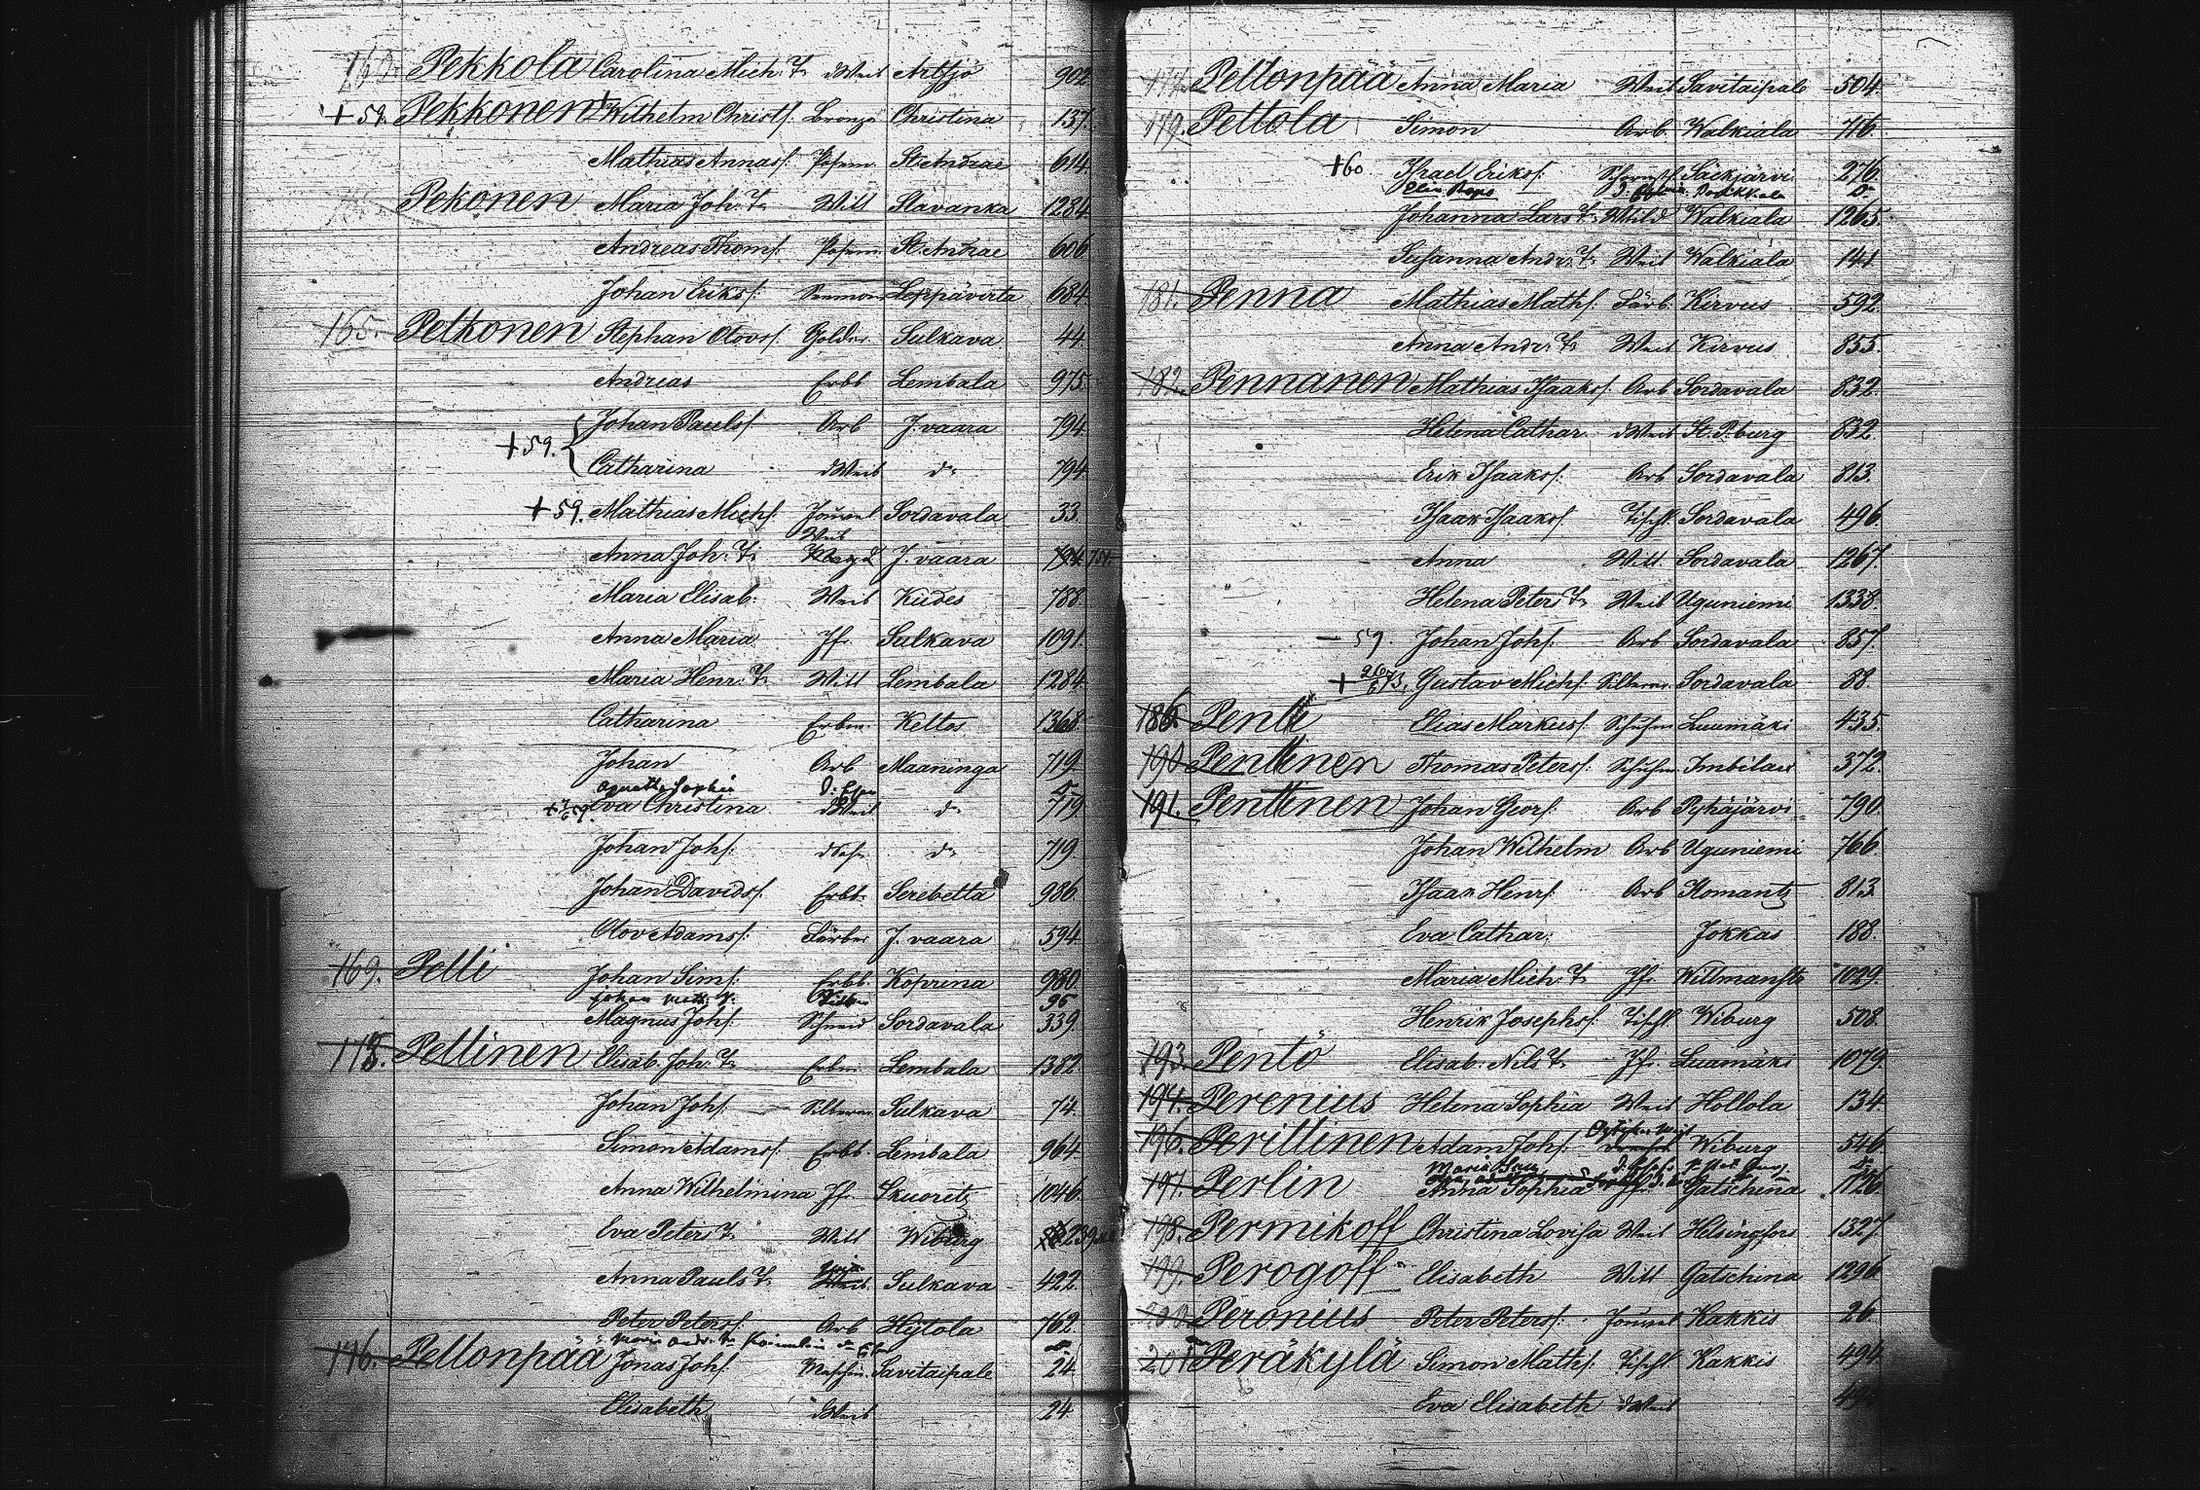 Pekkola Carolina Mich. T. dWeib Artsjö 902
+59. Pekkonen Wilhelm Christs. Bronza Christina 137.
Mathias Annas. Posem St. Andrae 614
Pekonen Maria Joh. T. Witt Slavanka 1284
Andreas Thoms. Posem St. Andrae 606
Johan Eriks. Leppävirta 684
165. Pelkonen Stephan Olovs. Golda. Sulkava 44
Andreas Erbb Lembala 975
Johan Pauls. Arb J. vaara 794
+59. Catharina dWeib d. 794
+59. Mathias Michs. Jouvel Sordavala 33.
Weib
Anna Joh. T. J. vaara
Maria Elisab. Weib Kides 788
Anna Maria Jfr. Sulkava 1091.
Maria Henr. T. Witt Lembala 1284
Catharina Erbm. Keltos 1368
Johan Arb Maaninga 719
Sophia
Eva Christina dWeib d. 719
Johan Johs. dSohn d. 719
Johan Davids. Erbb. Serebetta 986
Olov Adams. Färber J. vaara 594
169. Pelli Johan Sims. Erbb. Koprina 980
Johan 95
Magnus Johs. Schneid Sordavala 339
Pellinen Elisab. Joh. T. Erbm Lembala 1382
Johan Johs. Silberar Sulkava 74.
Simon Adams. Erbb. Lembala 964
Anna Wilhelmina Jfr. Skuoretz 1046
Eva Peters T. Witt Wiburg 239
Anna Pauls T. Sulkava 422
Peter Peters. Arb Hytola 762
Maria Andr. T.
176. Pellonpää Jonas Johs. Maschin. Savitaipale 24
Elisabeth dWeib 24
177. Pellonpää Anna Maria Weib Savitaipale 504.
179. Peltola Simon Arb. Walkiala 716.
+60 Israel Eriks. Säckjärvi 276.
Johanna Lars T. Walkiala 1265.
Susanna Andr. T. Weib Walkiala 141
181. Penna Mathias Maths. Färb. Kirvus 592.
Anna Andr. T. Weib Kirvus 855.
182. Pennanen Mathias Isaaks. Arb Sordavala 832.
Helena Cathar. dWeib St. P.burg 832.
Erik Isaaks. Arb Sordavala 813.
Isaak Isaaks. Tischl. Sordavala 496.
Anna Witt. Sordavala 1267.
Helena Peters T. Weib Uguniemi 1338.
— 59. Johan Johs. Arb Sordavala 857.
+ Gustav Michs. Silberar. Sordavala 88.
186. Pentti Elias Markus. Schuhm Luumäki 435.
190. Penttinen Thomas Peters. Schuhm Imbilax 372.
191. Penttinen Johan Geors. Arb Pyhäjärvi 790.
Johan Wilhelm Arb Uguniemi 766.
Isaak Henrs. Arb Ilomantz 813
Eva Cathar. Jokkas 188.
Maria Mich. T. Jfr. Willmanstr 1029.
Henrik Josephs. Tischl. Wiburg 508.
193. Pentö Elisab. Nils T. Jfr. Luumäki 1079.
194. Perenius Helena Sophia Weib Hollola 134.
196. Perittinen Adam Johs. Wiburg 546.
Maria
197. Perlin Anna Sophia Jfr. Gatschina 1126.
198. Permikoff Christina Lovisa Weib Helsingfors 1327.
199. Perogoff Elisabeth Witt Gatschina 1296.
200. Peronius Peter Peters. Jouvel Kakkis 26.
201. Peräkylä Simon Maths. Tischl. Kakkis 494
Eva Elisabeth dWeib